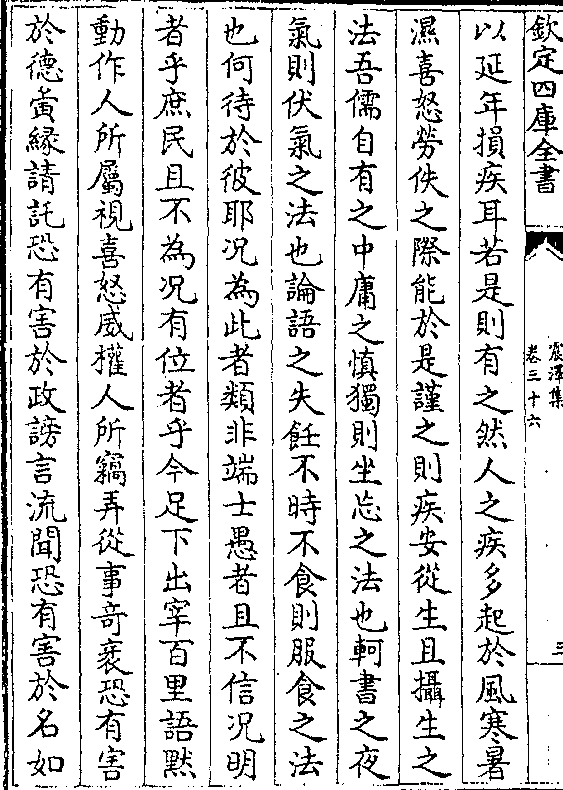 欽定四庫全書
震澤集
卷三十六
三
以延年損疾耳若是則有之然人之疾多起於風寒暑
濕喜怒勞佚之際能於是謹之則疾安從生且攝生之
法吾儒自有之中庸之慎獨則坐忘之法也軻書之夜
氣則伏氣之法也論語之失飪不時不食則服食之法
也何待於彼耶况為此者類非端士愚者且不信况明
者乎庶民且不為况有位者乎今足下出宰百里語黙
動作人所屬視喜怒威權人所竊弄從事竒衺恐有害
於德夤縁請託恐有害於政謗言流聞恐有害於名如